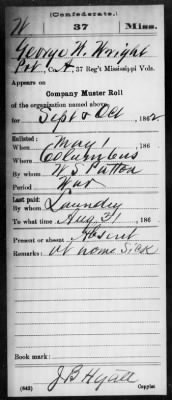 (Confederate.)
W 37 Miss.
George W. Wright
Pvt, Co. A, 37 Reg't Mississippi Vols.
Appears on
Company Muster Roll
of the organization named above,
for Sept & Oct, 1862
Enlisted:
When May 1, 186
Where Columbus
By whom W S Patton
Period War
Last paid:
By whom Laundry
To what time Aug 31, 186
Present or absent Absent
Remarks: at home Sick
Book mark:
J B Hyatt
(642) Copyist.